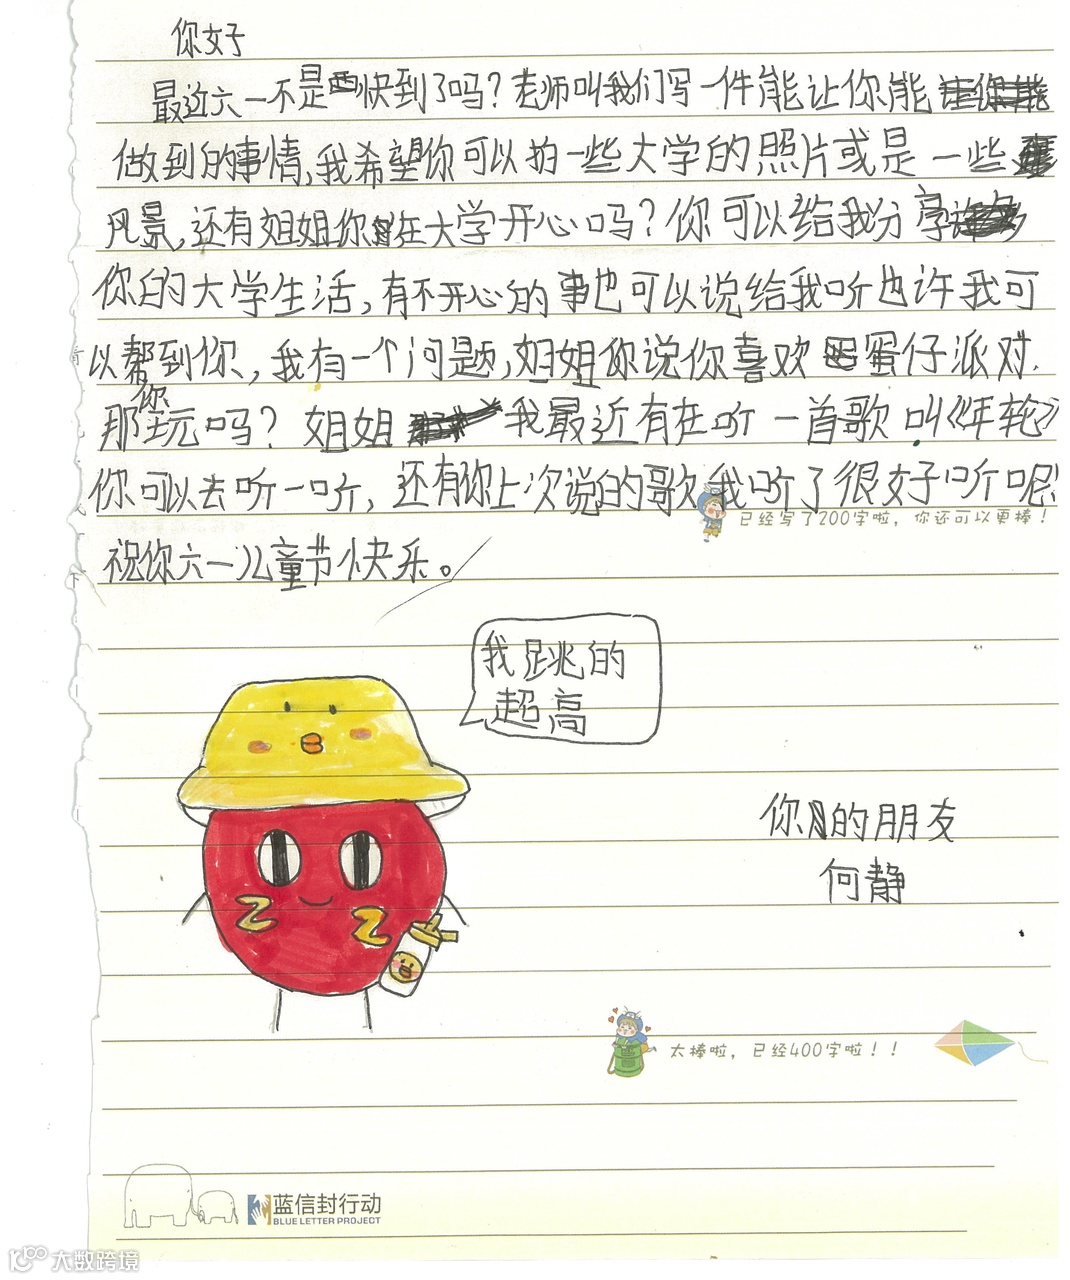 你好
最近六一不是快到了吗？老师叫我们写一件能让你能
做到的事情,我希望你可以拍一些大学的照片或是一些
风景,还有姐姐你在大学开心吗？你可以给我分享
你的大学生活,有不开心的事也可以说给我听也许我可
以帮到你,我有一个问题,姐姐你说你喜欢蛋仔派对.
那你玩吗？姐姐我最近有在听一首歌叫《年轮》
你可以去听一听,还有你上次说的歌我听了很好听呢!
已经写了200字啦，你还可以更棒！
祝你六一儿童节快乐。
我跳的
超高
你的朋友
何静
太棒啦，已经400字啦！！
蓝信封行动
BLUE LETTER PROJECT
大数跨境